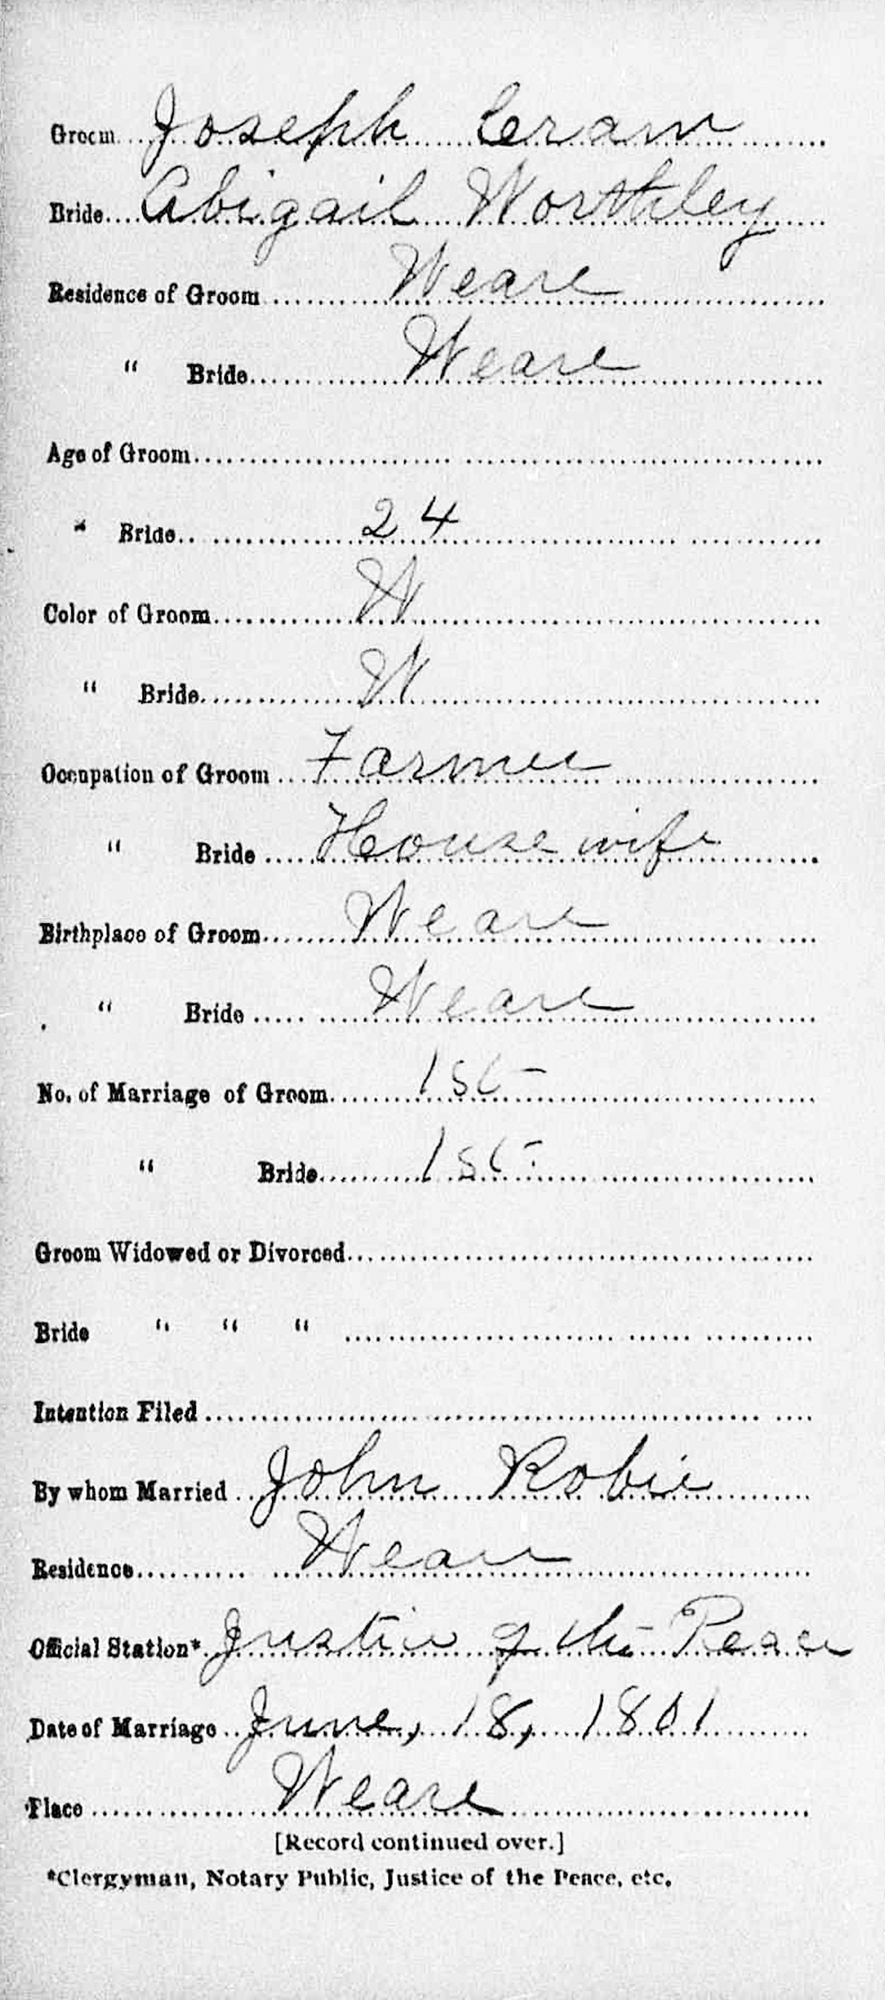 Groom Joseph Cram
Bride Abigail Worthley
Residence of Groom Weare
" Bride Weare
Age of Groom
" Bride 24
Color of Groom W
" Bride W
Occupation of Groom Farmer
" Bride Housewife
Birthplace of Groom Weare
" Bride Weare
No. of Marriage of Groom 1st
" Bride 1st
Groom Widowed or Divorced
Bride " " "
Intention Filed
By whom Married John Robie
Residence Weare
Official Station* Justice of the Peace
Date of Marriage June, 18, 1801
Place Weare
[Record continued over.]
*Clergyman, Notary Public, Justice of the Peace, etc.